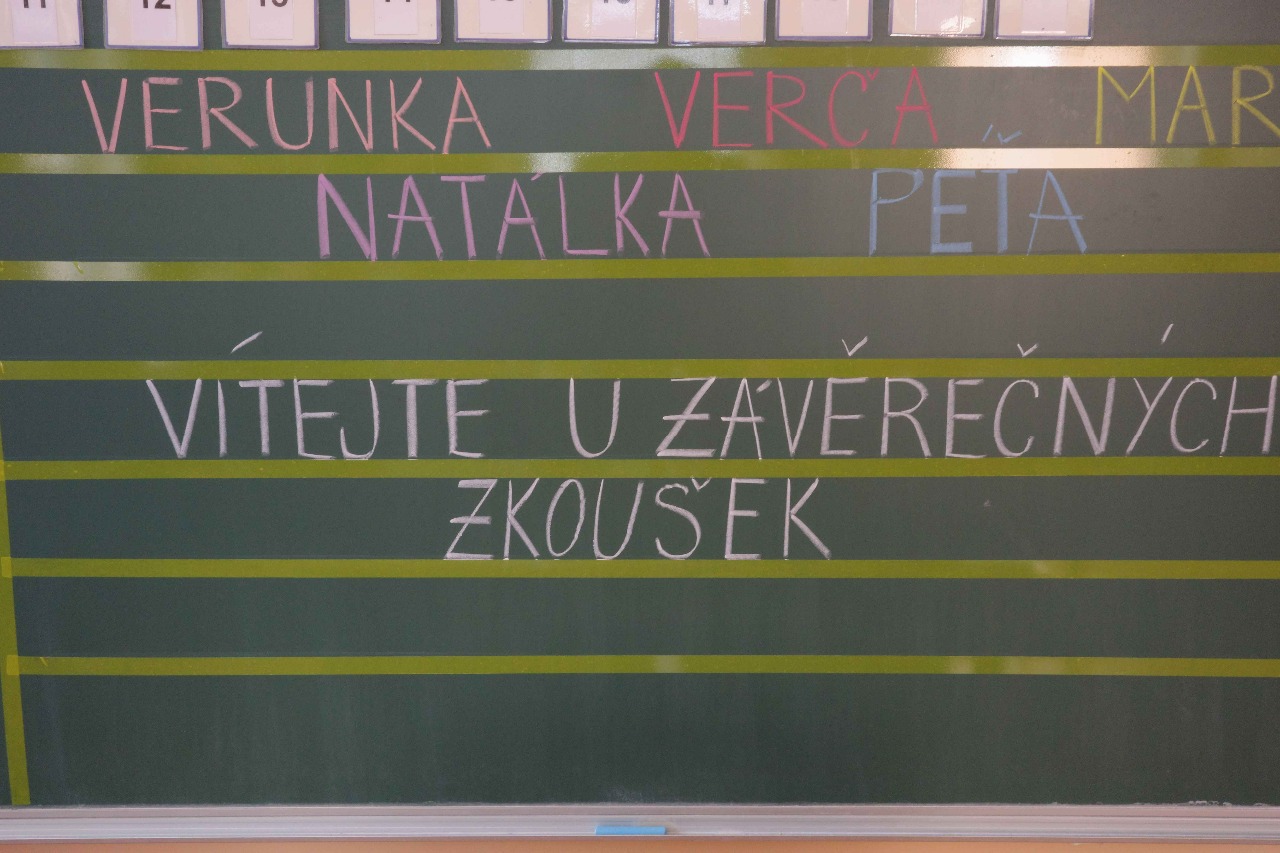 11 12 13
VERUNKA VERČA MAR
NATÁLKA PÉŤA
VÍTEJTE U ZÁVĚREČNÝCH
ZKOUŠEK